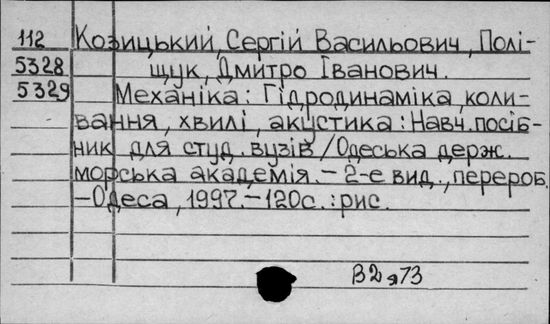 112 Козицький, Сергій Васильович, Полі-
5328 щук, Дмитро Іванович.
5329 Механіка: Гідродинаміка, коли-
вання, хвилі, акустика: Навч. посіб-
ник для студ. вузів / Одеська держ.
морська академія. – 2-е вид., перероб.
– Одеса, 1997. – 120с. : рис.
В2я73